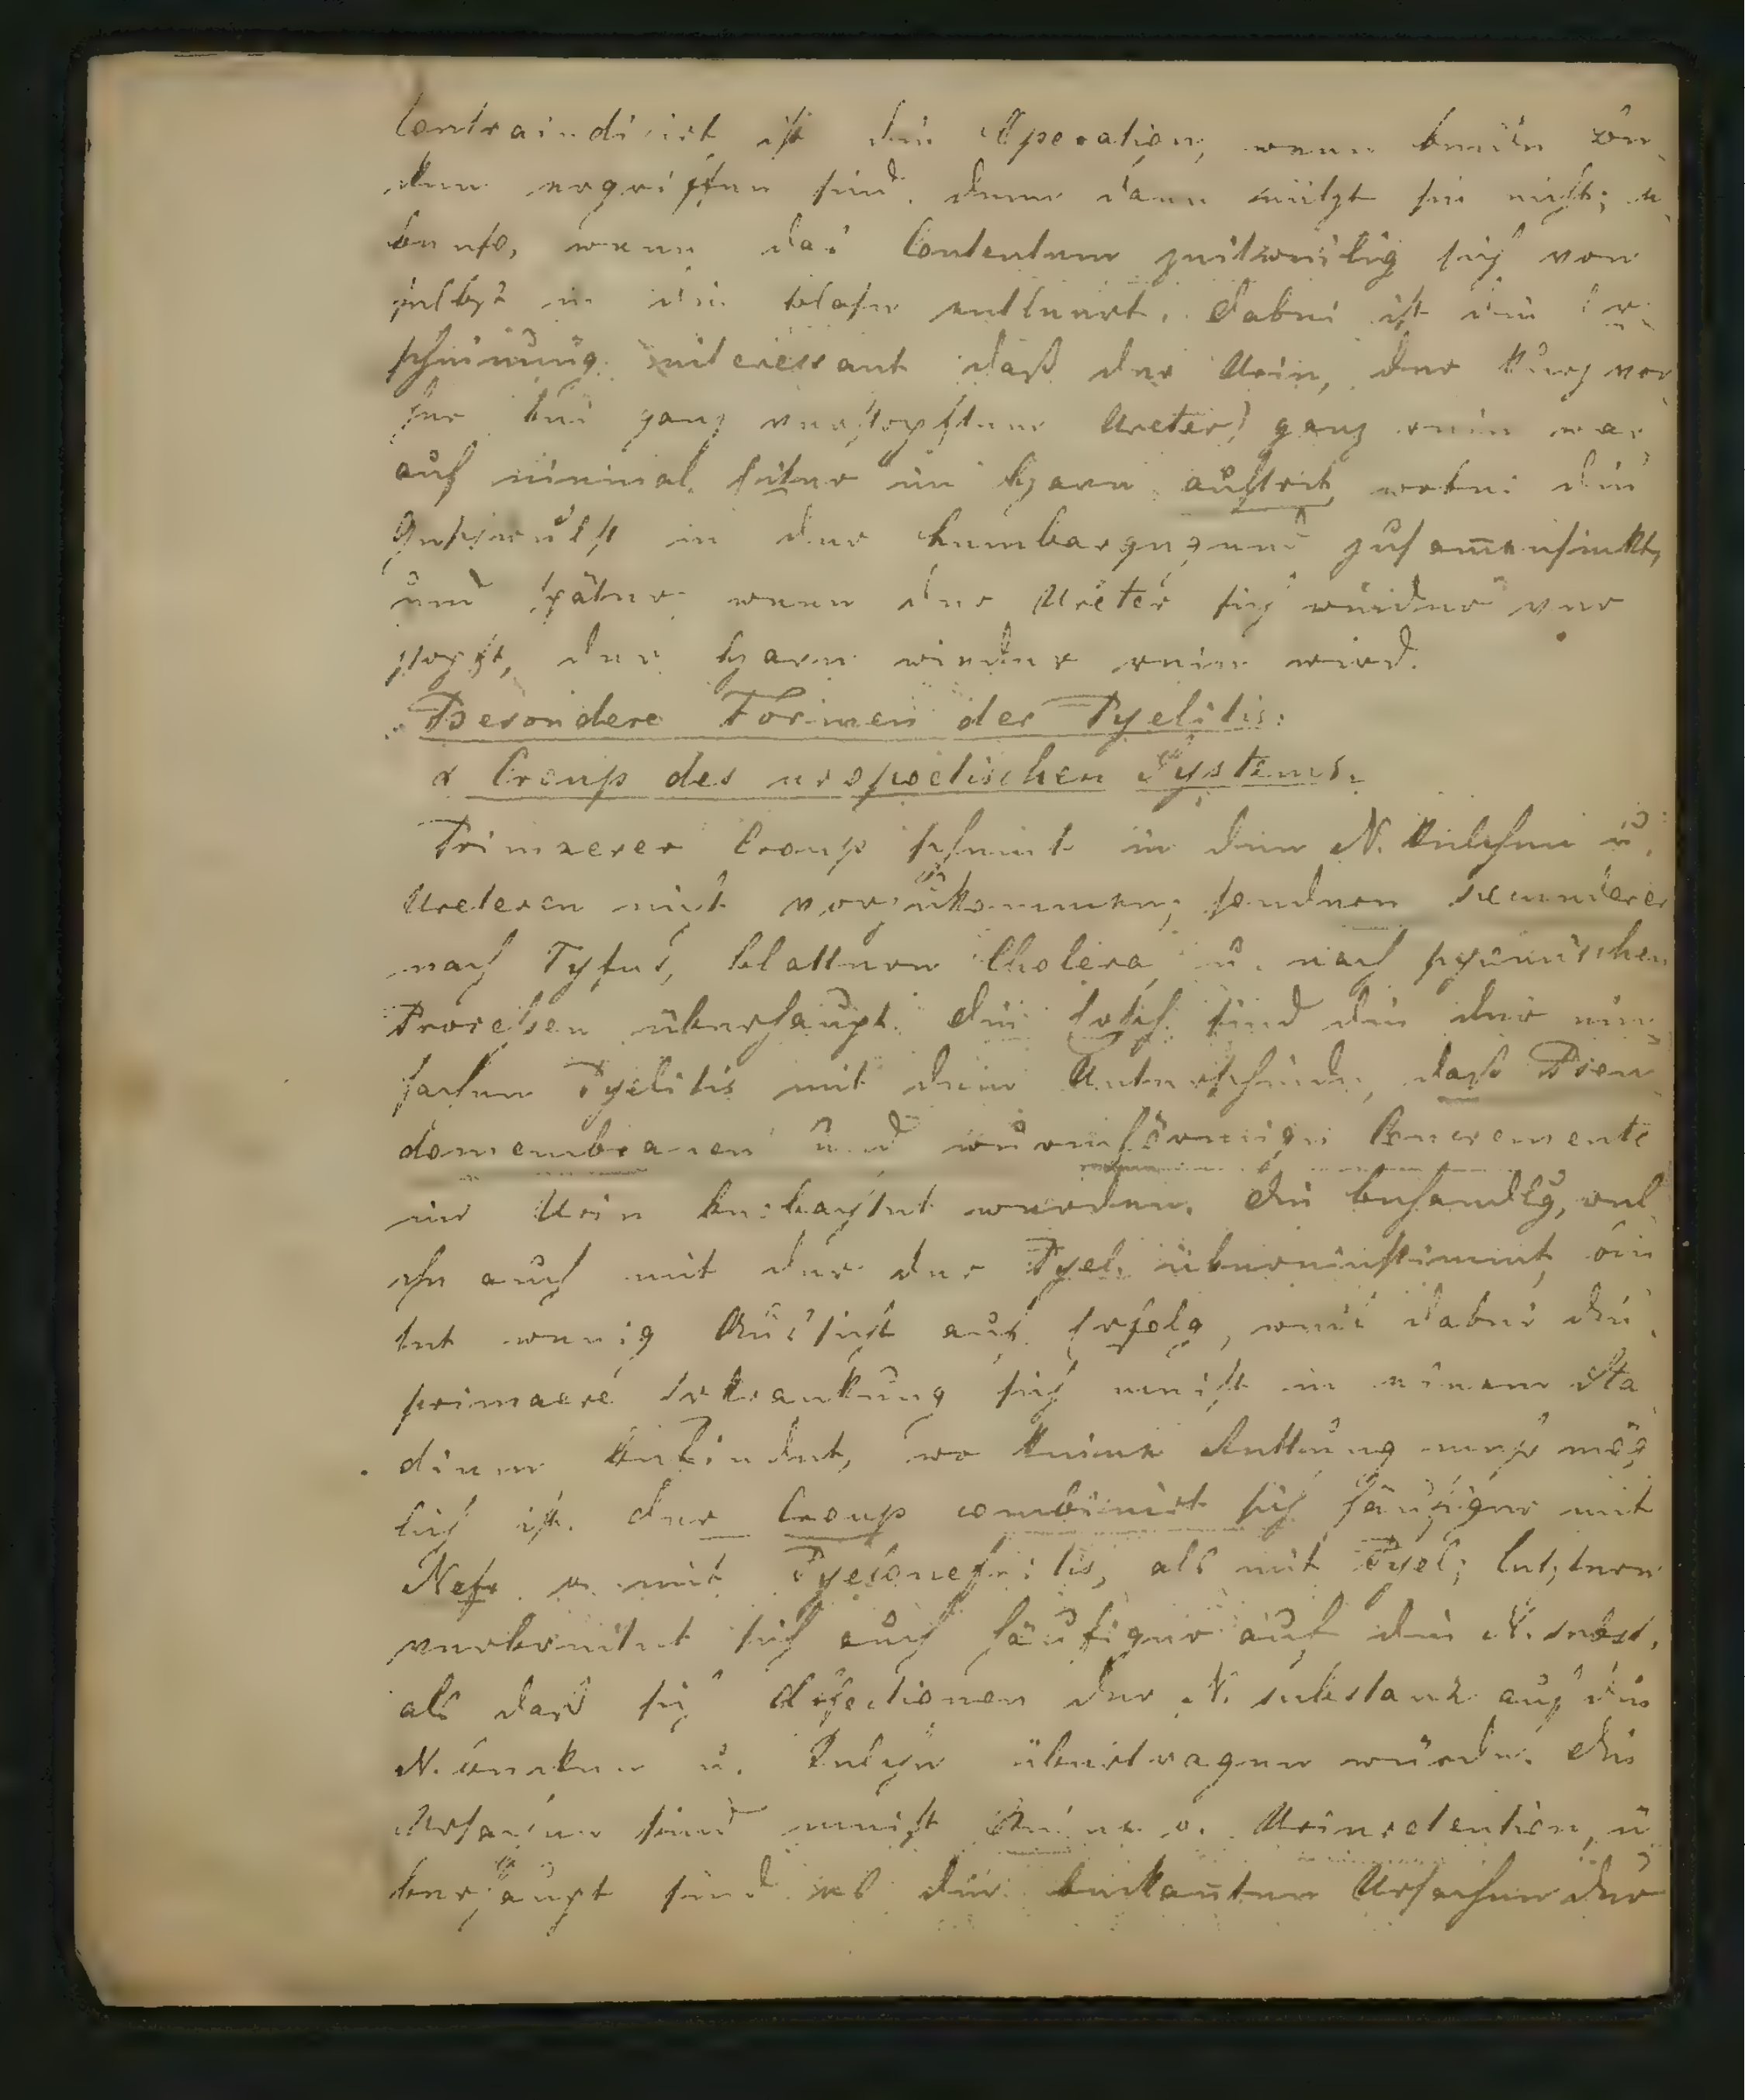 Contraindicirt ist die Operation, wenn beide
den ergriffen sind, denn dann nützt sie nicht; e-
benso, wenn das Contentum zeitweilig sich von
selbst in die Blase entleert. Dabei ist die Er-
scheinung interessant daß der Urin, der kurz vor-
her bei ganz verstopftem Ureter, ganz rein war
auf einmal Eiter im Harn auftrit, wobei die
Geschwulst in der Lumbargegend zusam̅ensinkt,
und später wenn der Ureter sich wieder ver
stopft, der Harn wieder rein wird.
Besondere Formen der Pyelitis:
α Croup des uropoetischen Systems.
Primaerer Croup scheint in den N. Kelchen u.
Ureteren nicht vorzukommen, sondern secundaerer
nach Tyfus, Blattern Cholera u. nach pyämischen
Processen überhaupt. Die sind die der ein-
fachen Pyelitis mit dem Unterschiede, dass Pseu-
domembranen und wurmförmige Concremente
im Urin beobachtet werden. Die Behandlg, wel-
che auch mit der der Pyel. übereinstimmt, bie
tet wenig Aussicht auf Erfolg, weil dabei die
primaere Erkrankung sich meist in einem Sta
dium befindet, wo keine Rettung mehr mög
lich ist. Der Croup combinirt sich häufiger mit
Nefr. u. mit Pyelonefritis, als mit Pyel; letztere
verbreitet sich auch häufiger auf die N. subst.
als daß sich Affectionen der N. substanz auf die
N. becken u. Kelche übertragen würde. Die
Ursachen sind meist Steine o. Urinretention, ü
berhaupt sind es die bekan̅ten Ursachen der